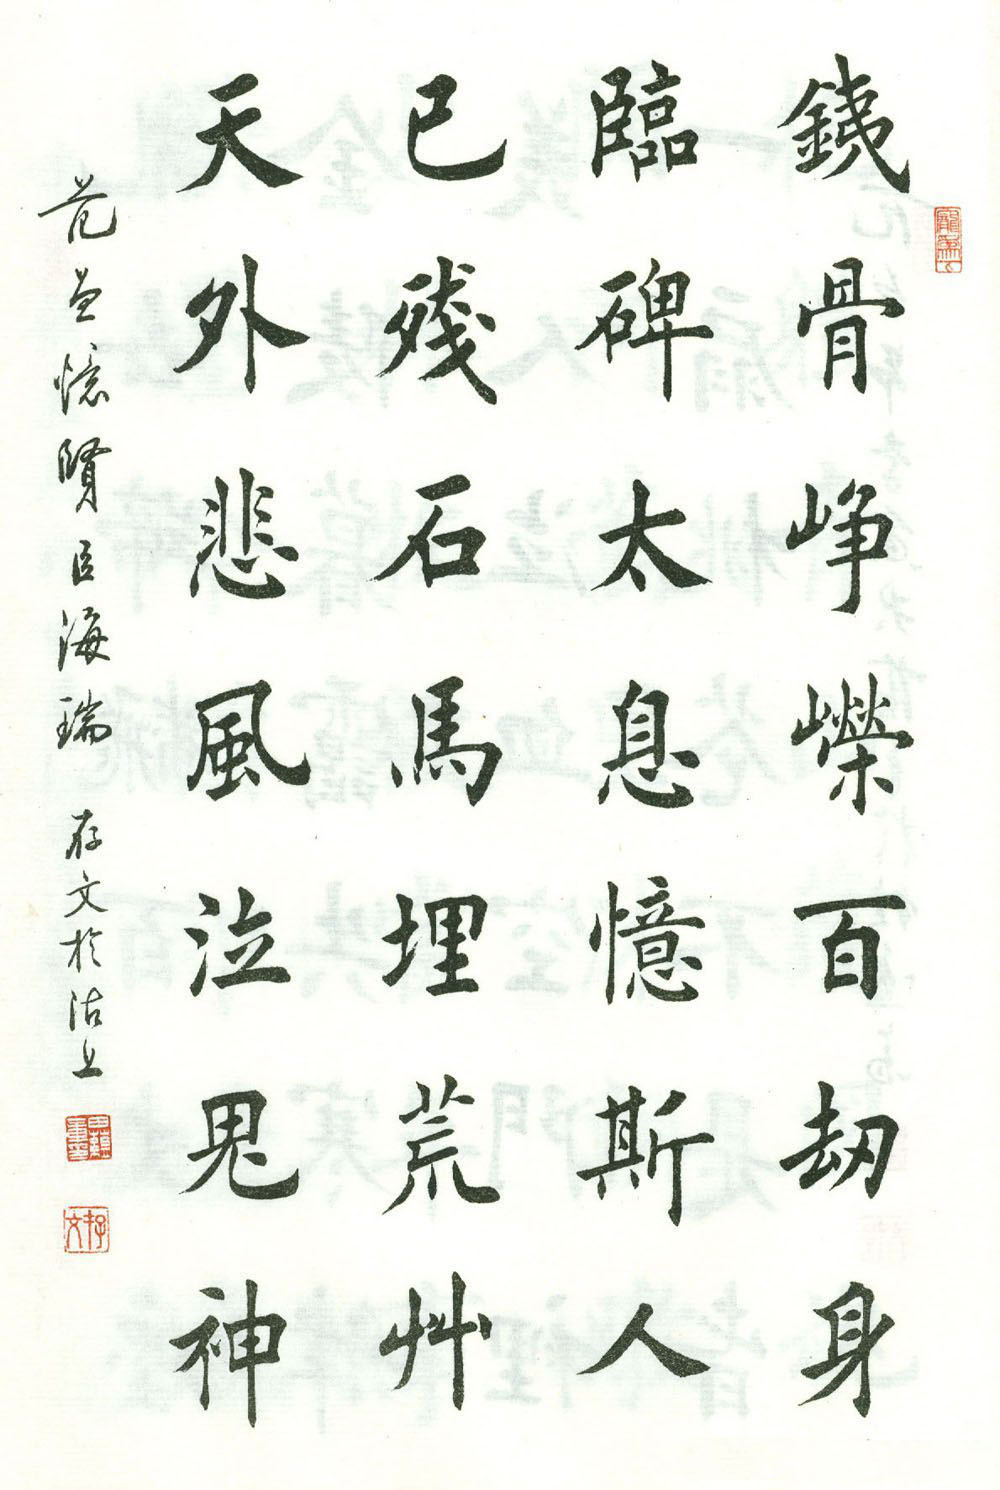 銕骨峥嶸百劫身
臨碑太息憶斯人
已殘石馬埋荒艸
天外悲風泣鬼神
范曾憶賢臣海瑞 存文於沽上
存文